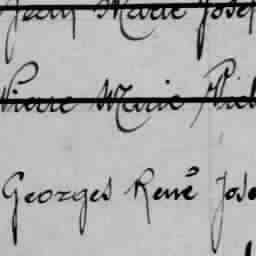 Jean Marie Josep
Pierre Marie Mich
Georges René Jose